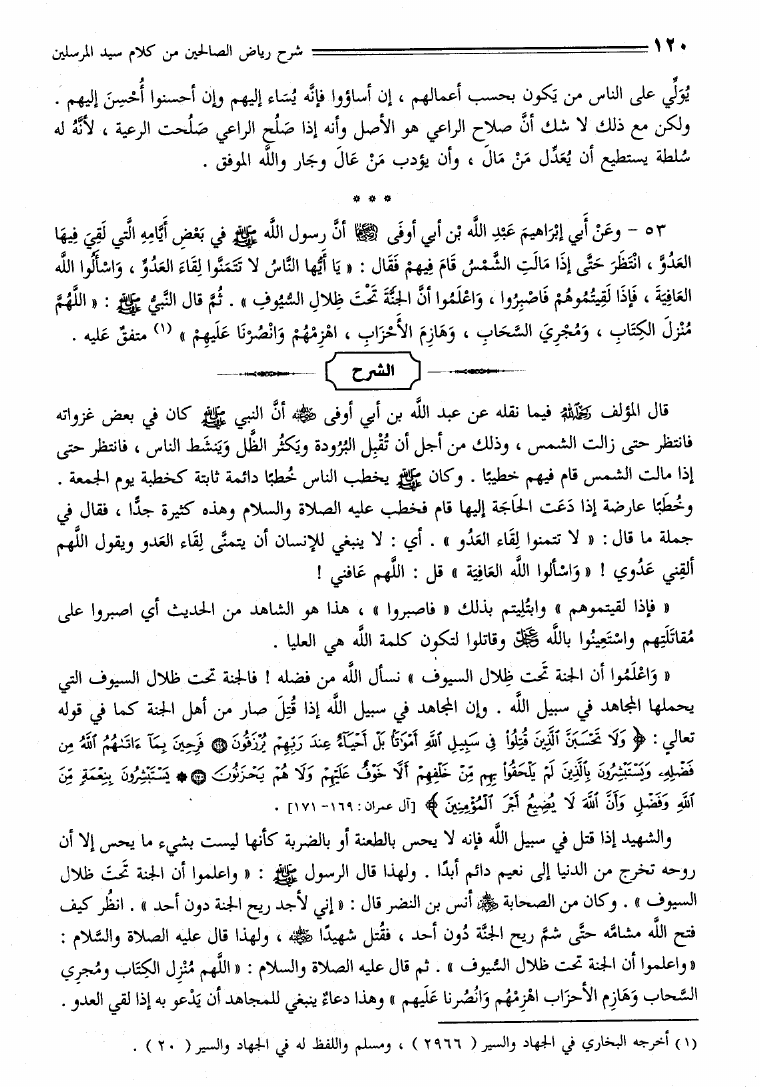 ١٢٠ شرح رياض الصالحين من كلام سيد المرسلين
يُوَلِّي على الناس من يَكون بحسب أعمالهم ، إن أساؤوا فإنَّه يُسَاء إليهم وإن أحسنوا أُحْسِنَ إليهم .
ولكن مع ذلك لا شك أنَّ صلاح الراعي هو الأصل وأنه إذا صَلُح الراعي صَلُحت الرعية ، لأنَّهُ له
سُلطة يستطيع أن يُعَدِّل مَنْ مَالَ ، وأن يؤدب مَنْ عَالَ وجَار واللَّه الموفق .
* * *
٥٣ - وعَنْ أَبي إبْرَاهيمَ عَبْدِ اللَّه بْن أبي أوفَى ﵁ أنَّ رسول اللَّه ﷺ في بَعْضِ أيَّامِهِ الَّتي لَقِيَ فِيهَا
العَدُوَّ ، انْتَظَرَ حَتَّى إذَا مَالَتِ الشَّمْسُ قَامَ فِيهمْ فَقَال : « يَا أيُّها النَّاسُ لا تَتَمَنَّوا لِقَاءَ العَدُوِّ ، وَاسْأَلُوا اللَّه
العَافِيَةَ ، فَإذَا لَقِيتُموهُمْ فَاصْبِرُوا ، وَاعْلَمُوا أنَّ الجَنَّةَ تَحْتَ ظِلالِ السُّيُوفِ » . ثُمَّ قال النَّبيُّ ﷺ : « اللَّهُمَّ
مُنْزِلَ الكِتَابِ ، وَمُجْرِيَ السَّحَابِ ، وَهَازِمَ الأَحْزَابِ ، اهْزِمْهُمْ وَانْصُرْنَا عَلَيهِمْ » (١) متفقٌ عَليه .
الشرح
قال المؤلف ﵀ فيما نقله عن عبد اللَّه بن أبي أوفى ﵁ أنَّ النبي ﷺ كان في بعض غزواته
فانتظر حتى زالت الشمس ، وذلك من أجل أن تُقْبِل البُرُودة ويَكثُر الظِّل وَيَنشَط الناس ، فانتظر حتى
إذا مالت الشمس قام فيهم خطيبًا . وكان ﷺ يخطب الناس خُطبًا دائمة ثابتة كخطبة يوم الجمعة .
وخُطَبًا عارضة إذا دَعَت الحَاجَة إليها قام فخطب عليه الصلاة والسلام وهذه كثيرة جدًّا ، فقال في
جملة ما قال: « لا تتمنوا لِقَاء العَدُو » . أي : لا ينبغي للإنسان أن يتمنَّى لِقَاء العَدو ويقول اللَّهم
ألقِني عَدُوي ! « وَاسألوا اللَّه العَافِيَة » قل : اللَّهم عَافني !
« فإذا لقيتموهم » وابتُلِيتم بذلك « فاصبروا » ، هذا هو الشاهد من الحديث أي اصبروا على
مُقاتَلَتِهم واسْتَعِينُوا باللَّه ﷿ وقاتلوا لتكون كلمة اللَّه هي العليا .
« وَاعْلَمُوا أن الجنة تَحت ظِلال السيوف » نسأل اللَّه من فضله ! فالجنة تحت ظلال السيوف التي
يحملها المجاهد في سبيل اللَّه . وإن المجاهد في سبيل اللَّه إذا قُتِلَ صار من أهل الجنة كما في قوله
تعالي : ﴿ وَلَا تَحْسَبَنَّ الَّذِينَ قُتِلُواْ فِى سَبِيلِ اللَّهِ أَمْوَٰتًا بَلْ أَحْيَآءٌ عِندَ رَبِّهِمْ يُرْزَقُونَ ۝ فَرِحِينَ بِمَآ ءَاتَىٰهُمُ اللَّهُ مِن
فَضْلِهِۦ وَيَسْتَبْشِرُونَ بِالَّذِينَ لَمْ يَلْحَقُواْ بِهِم مِّنْ خَلْفِهِمْ أَلَّا خَوْفٌ عَلَيْهِمْ وَلَا هُمْ يَحْزَنُونَ ۝ * يَسْتَبْشِرُونَ بِنِعْمَةٍ مِّنَ
اللَّهِ وَفَضْلٍ وَأَنَّ اللَّهَ لَا يُضِيعُ أَجْرَ الْمُؤْمِنِينَ ﴾ [آل عمران : ١٦٩- ١٧١] .
والشهيد إذا قتل في سبيل اللَّه فإنه لا يحس بالطعنة أو بالضربة كأنها ليست بشيء ما يحس إلا أن
روحه تخرج من الدنيا إلى نعيم دائم أبدًا . ولهذا قال الرسول ﷺ : « واعلموا أن الجنة تَحتَ ظلال
السيوف » . وكان من الصحابة ﵃ أنس بن النضر قال : « إني لأجد ريح الجنة دون أحد » . انظُر كيف
فتح اللَّه مشامَّه حتَّى شمَّ ريح الجنَّة دُون أحد ، فقُتل شهيدًا ﵁ ، ولهذا قال عليه الصلاة والسَّلام :
« واعلموا أن الجنة تحت ظلال السُّيوف » . ثم قال عليه الصلاة والسلام : « اللَّهم مُنْزِل الكِتَاب ومُجري
السَّحاب وَهَازِم الأحزَاب اهْزِمْهُم وَانْصُرنا عَلَيهم » وهذا دعاءٌ ينبغي للمجاهد أن يَدْعو به إذا لقي العدو .
(١) أخرجه البخاري في الجهاد والسير ( ٢٩٦٦ ) ، ومسلم واللفظ له في الجهاد والسير ( ٢٠ ) .